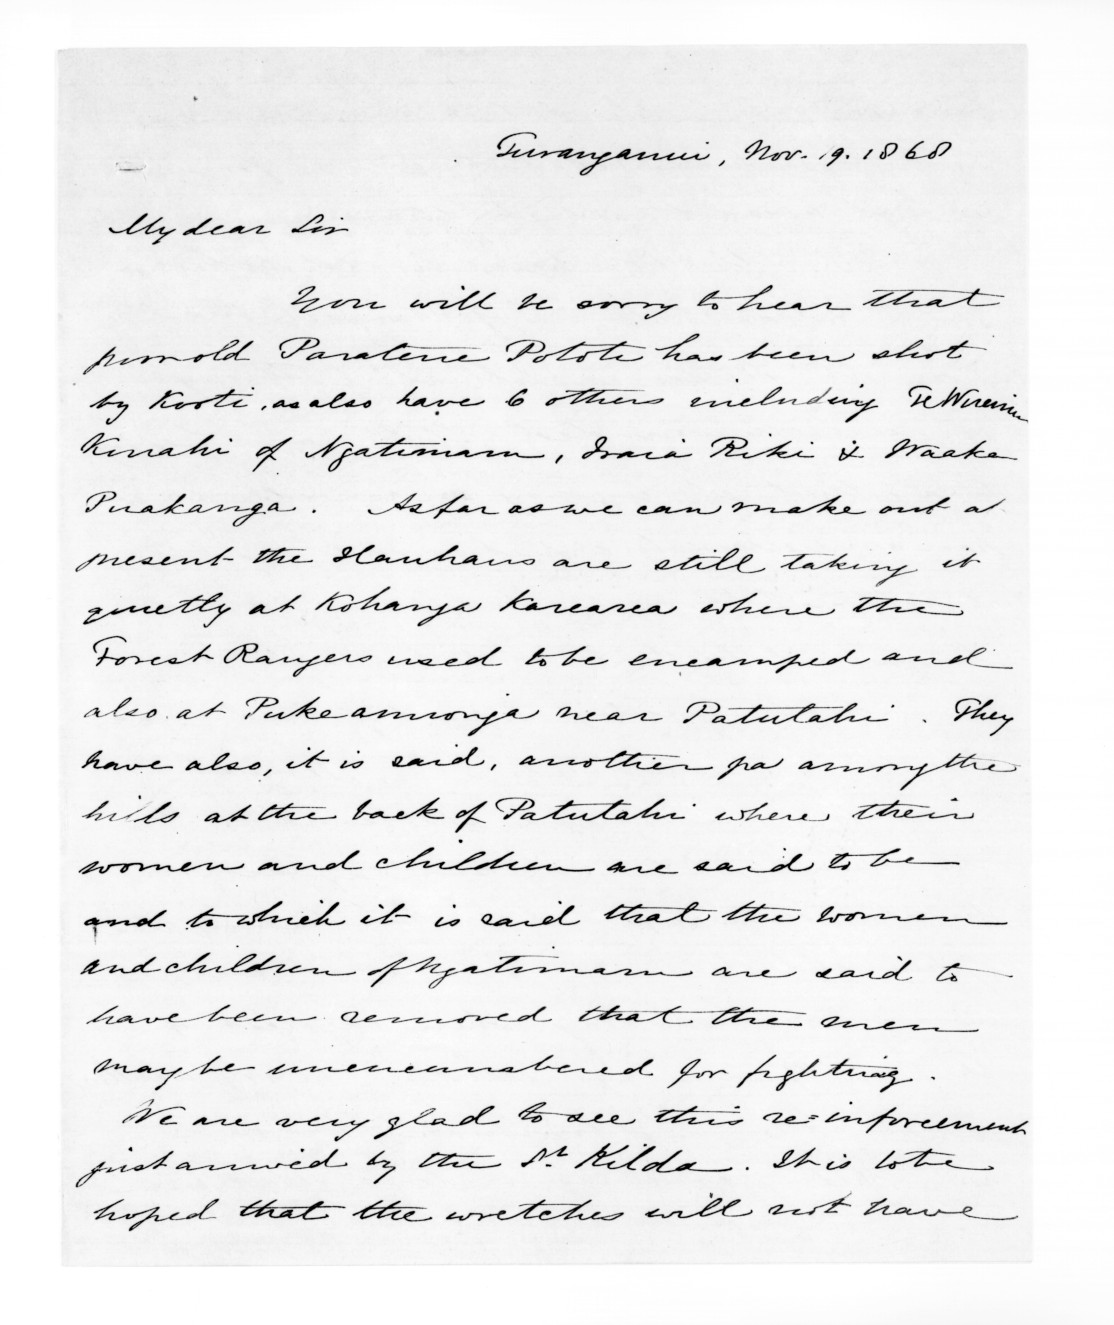 Turanganui, Nov. 19. 1868
My dear Sir
You will be sorry to hear that
poor old Paratene Pototi has been shot
by Kooti, as also have 6 others including Te Wiremu
Kinahi of Ngatimaru, Iraia Riki & Waaka
Puakanga. As far as we can make out at
present the Hauhaus are still taking it
quietly at Kohanga Karearea where the
Forest Rangers used to be encamped and
also at Pukeamionga near Patutahi. They
have also, it is said, another pa among the
hills at the back of Patutahi where their
women and children are said to be
and to which it is said that the women
and children of Ngatimaru are said to
have been removed that the men
may be unencumbered for fighting.
We are very glad to see this re=inforcement
just arrived by the St. Kilda. It is to be
hoped that the wretches will not have